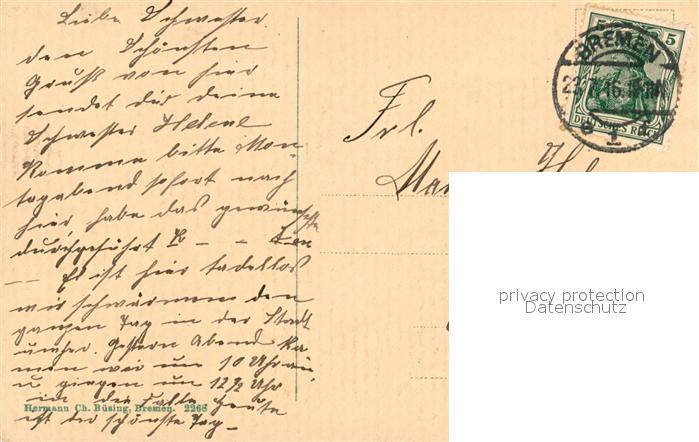 Liebe Schwester.
den Schönsten
Gruß von hier
sendet dir deine
Schwester Helene
Komme bitte Mon-
tagabend sofort nach
hier, habe das gewünschte
durchgeführt
-- Es ist hier tadellos
wir schwärmen den
ganzen Tag in der Stadt
umher. Gestern Abend ka-
men wir um 10 Uhr an
u gingen um 12½ Uhr
in die Falle heute
ist der schönste Tag -
Hermann Ch. Büsing, Bremen. 2268
5 5
BREMEN
DEUTSCHES REICH
Frl.
privacy protection
Datenschutz